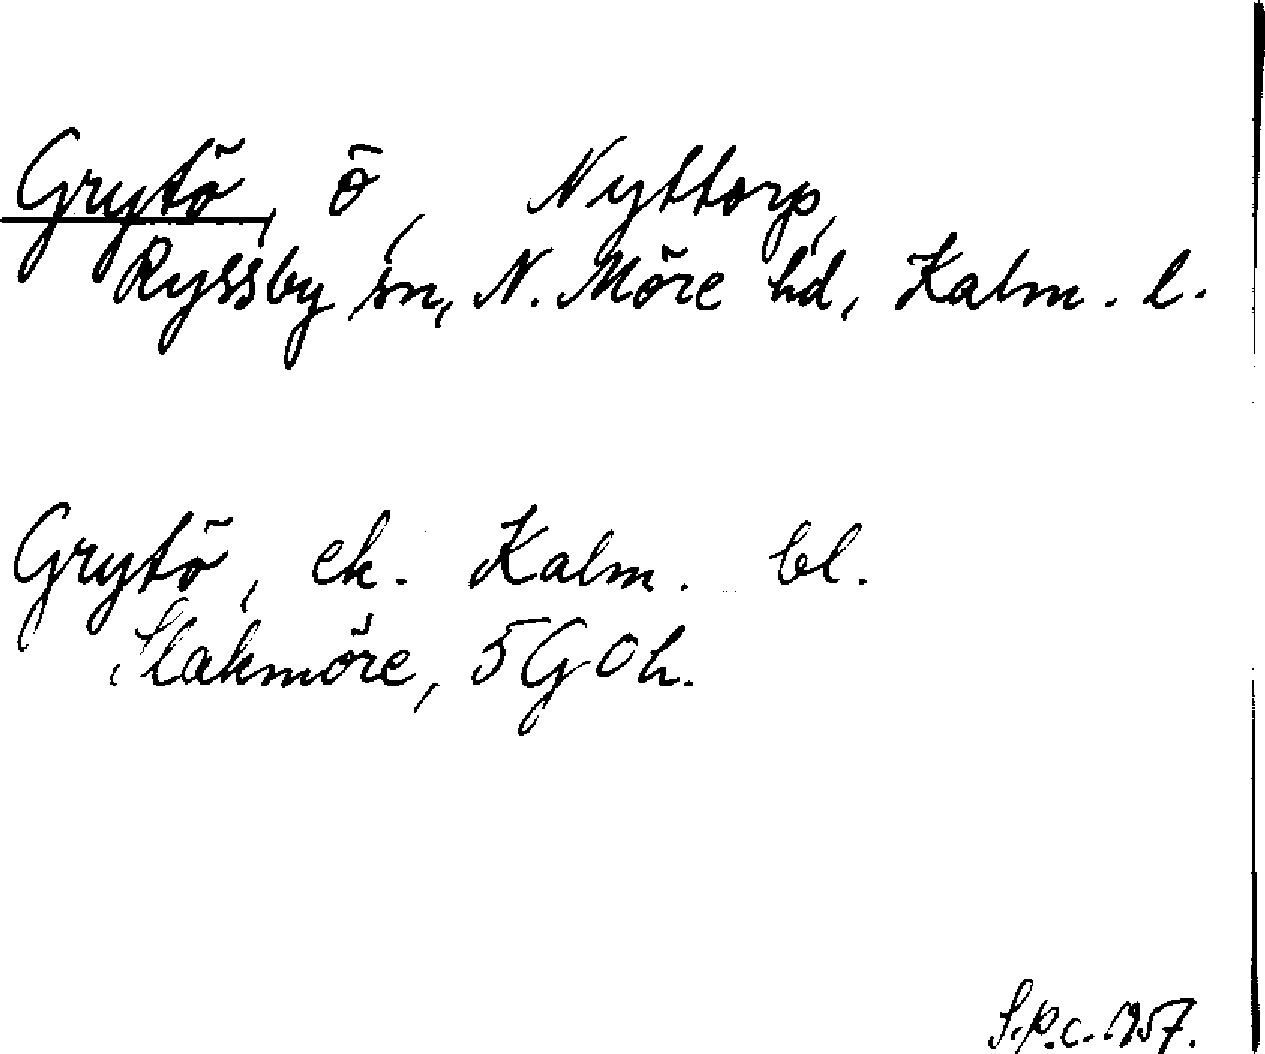 Grytö, ö, Nyttorp,
Ryssby sn, N. Möre hd, Kalm. l.
Grytö, ek. Kalm. bl.
Slakmöre, 5G0h.
S.P.c. 1957.